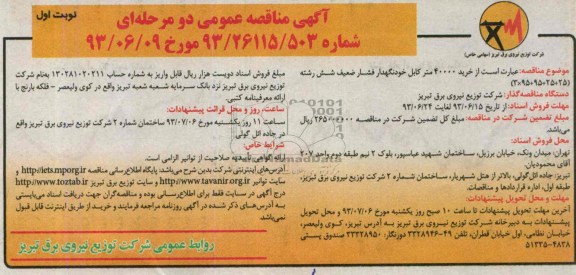 آگهی مناقصه عمومی دو مرحله‌ای
شماره ۹۳/۲۶۱۱۵/۵۰۳ مورخ ۹۳/۰۶/۰۹
نوبت اول
شرکت توزیع نیروی برق تبریز (سهامی خاص)
موضوع مناقصه: عبارت است از خرید ۴۰۰۰۰ متر کابل خودنگهدار فشار ضعیف شش رشته
دستگاه مناقصه‌گذار: شرکت توزیع نیروی برق تبریز
مهلت فروش اسناد: از تاریخ ۹۳/۰۶/۱۵ لغایت ۹۳/۰۶/۲۴
مبلغ تضمین شرکت در مناقصه: مبلغ کل تضمین شرکت در مناقصه ریال
می‌باشد.
محل فروش اسناد:
تهران: میدان ونک، خیابان برزیل، ساختمان شهید عباسپور، بلوک ۲ نیم طبقه دوم واحد ۲۰۷
آقای محمودیان
تبریز: جاده ائل‌گولی، بالاتر از هتل شهریار، ساختمان شماره ۲ شرکت توزیع نیروی برق تبریز،
طبقه اول، اداره قراردادها و مناقصات.
مهلت و محل تحویل پیشنهادات:
آخرین مهلت تحویل پیشنهادات تا ساعت ۱۰ صبح روز یکشنبه مورخ ۹۳/۰۷/۰۶ و محل تحویل
پیشنهادات به دبیرخانه شرکت توزیع نیروی برق تبریز به آدرس تبریز، کوی ولیعصر،
خیابان نظامی، اول خیابان قطران، تلفن ۴۹-۳۳۲۸۹۴۶ دورنگار، ۳۳۳۲۸۹۵۰ صندوق پستی
۵۱۳۳۵-۴۸۳۸
مبلغ فروش اسناد دویست هزار ریال قابل واریز به شماره حساب ۱۳۰۲۸۱۰۲۰۲۱۱ به‌نام شرکت
توزیع نیروی برق تبریز نزد بانک سرمایه شعبه شعبه تبریز واقع در کوی ولیعصر - فلکه بارنج با
ارائه معرفینامه کتبی.
ساعت، روز و محل قرائت پیشنهادات:
ساعت ۱۱ روز یکشنبه مورخ ۹۳/۰۷/۰۶ ساختمان شماره ۲ شرکت توزیع نیروی برق تبریز واقع
در جاده ائل گولی
شرایط خاص:
ارائه گواهی تایید صلاحیت از توانیر الزامی است.
آدرس‌های اینترنتی شرکت بدین شرح می‌باشد: پایگاه اطلاع‌رسانی مناقصه http://iets.mporg.ir و
سایت توانیر http://www.tavanir.org.ir و سایت توزیع نیروی تبریز http://www.toztab.ir
درج آگهی در سایت فقط برای اطلاع‌رسانی بوده و مناقصه‌گران جهت دریافت اسناد می‌بایستی
به آدرس‌های ذکر شده در آگهی روزنامه مراجعه فرمایند و خرید از طریق اینترنت قابل قبول
نمی‌باشد.
روابط عمومی شرکت توزیع نیروی برق تبریز